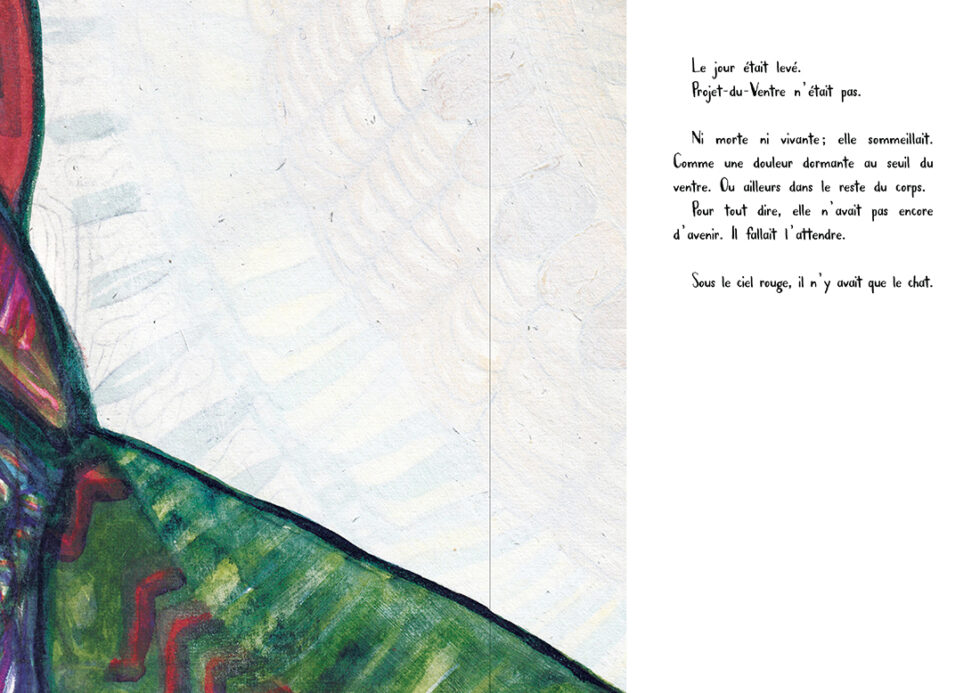 Le jour était levé.
Projet-du-Ventre n'était pas.
Ni morte ni vivante; elle sommeillait.
Comme une douleur dormante au seuil du
ventre. Ou ailleurs dans le reste du corps.
Pour tout dire, elle n'avait pas encore
d'avenir. Il fallait l'attendre.
Sous le ciel rouge, il n'y avait que le chat.